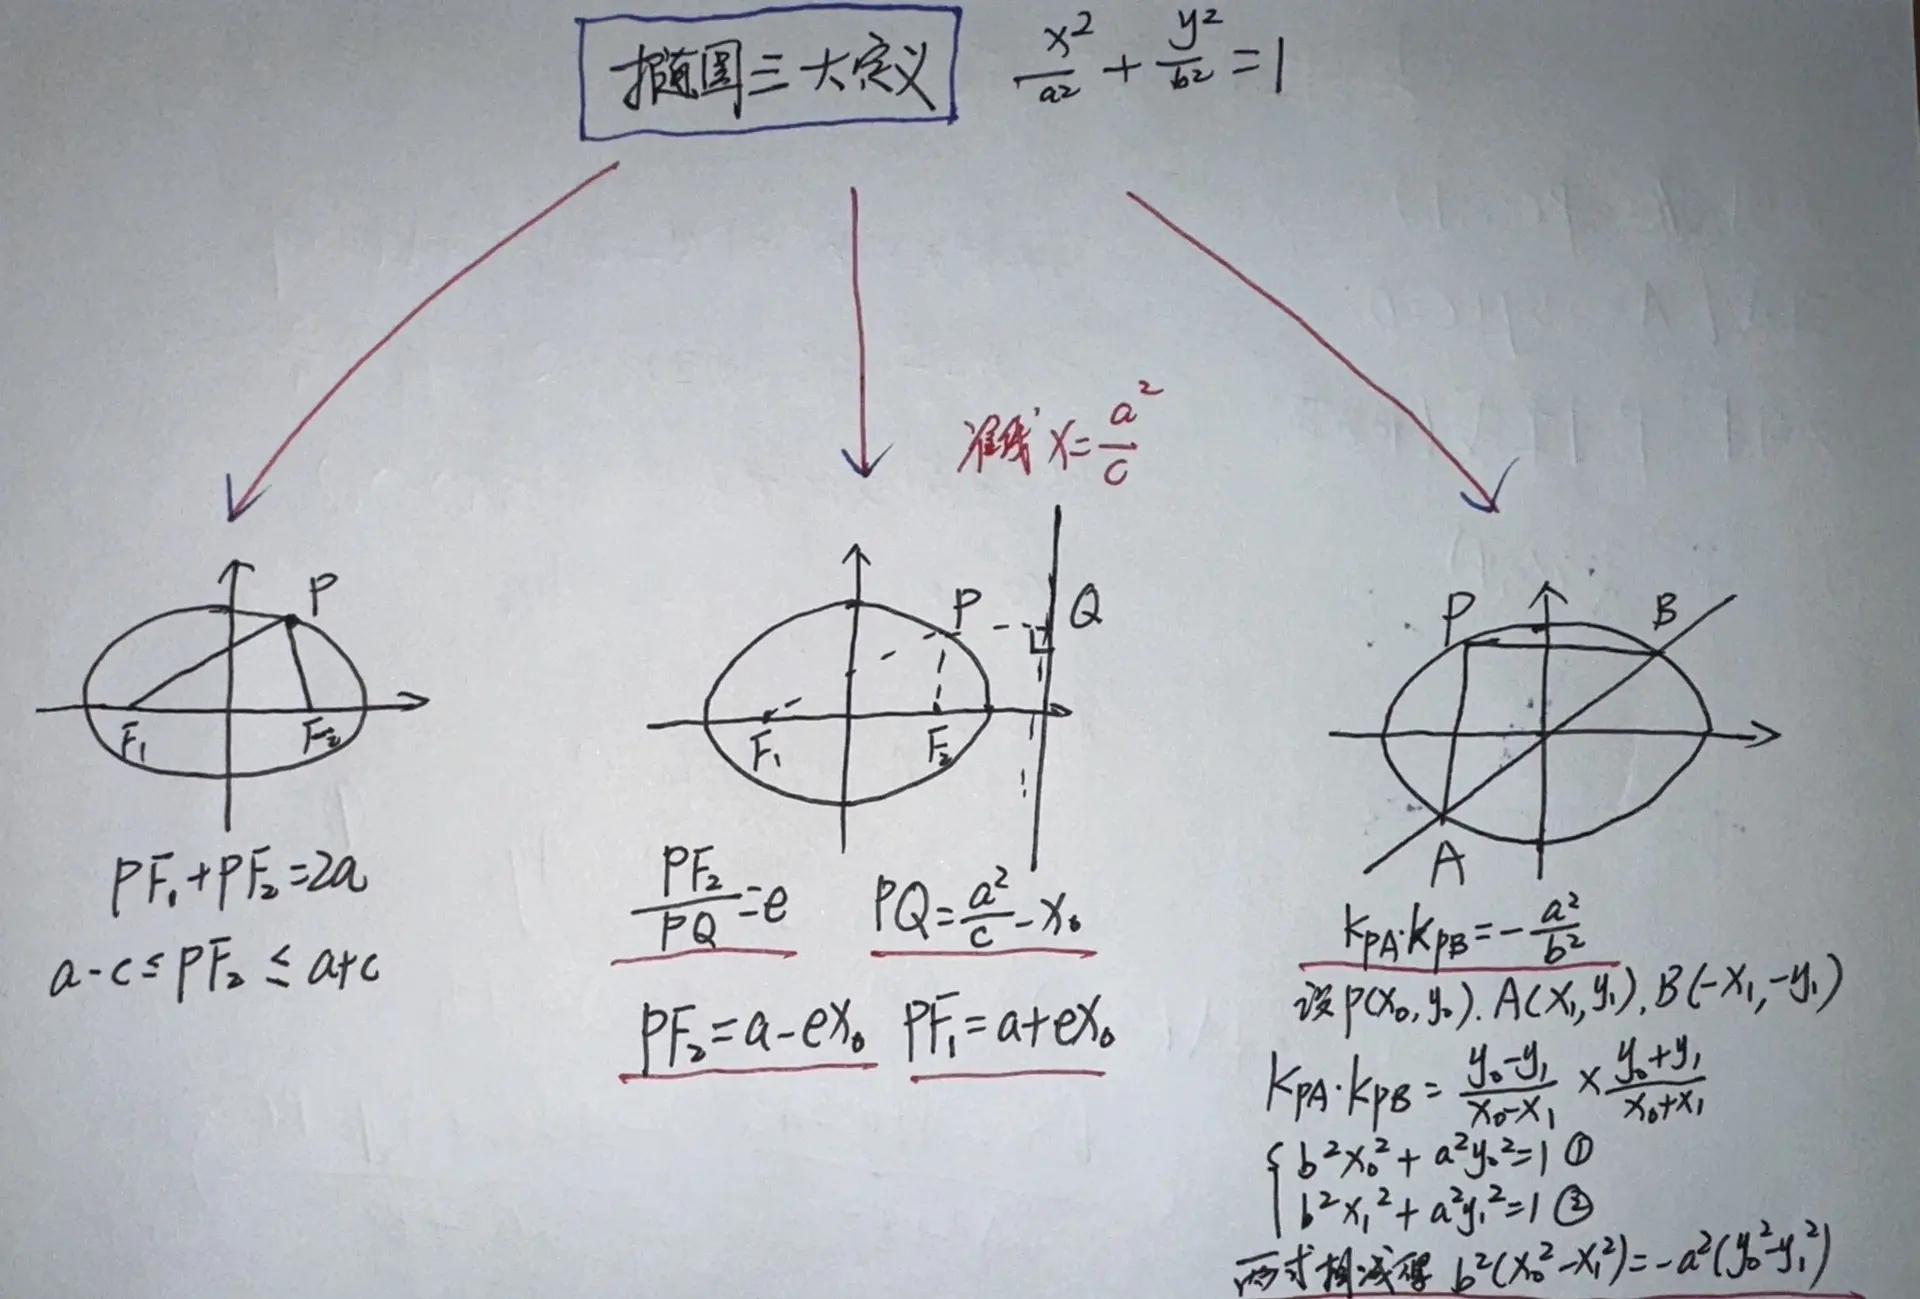 椭圆三大定义 x²/a² + y²/b² = 1
准线 x = a²/c
P
F₁ F₂
PF₁+PF₂=2a
a-c≤PF₂≤a+c
P Q
F₁ F₂
PF₂/PQ=e PQ=a²/c-x₀
PF₂=a-ex₀ PF₁=a+ex₀
P B
A
K_PA·K_PB=-a²/b²
设P(x₀,y₀).A(x₁,y₁),B(-x₁,-y₁)
K_PA·K_PB=(y₀-y₁)/(x₀-x₁)×(y₀+y₁)/(x₀+x₁)
{b²x₀²+a²y₀²=1①
b²x₁²+a²y₁²=1②
两式相减得 b²(x₀²-x₁²)=-a²(y₀²-y₁²)